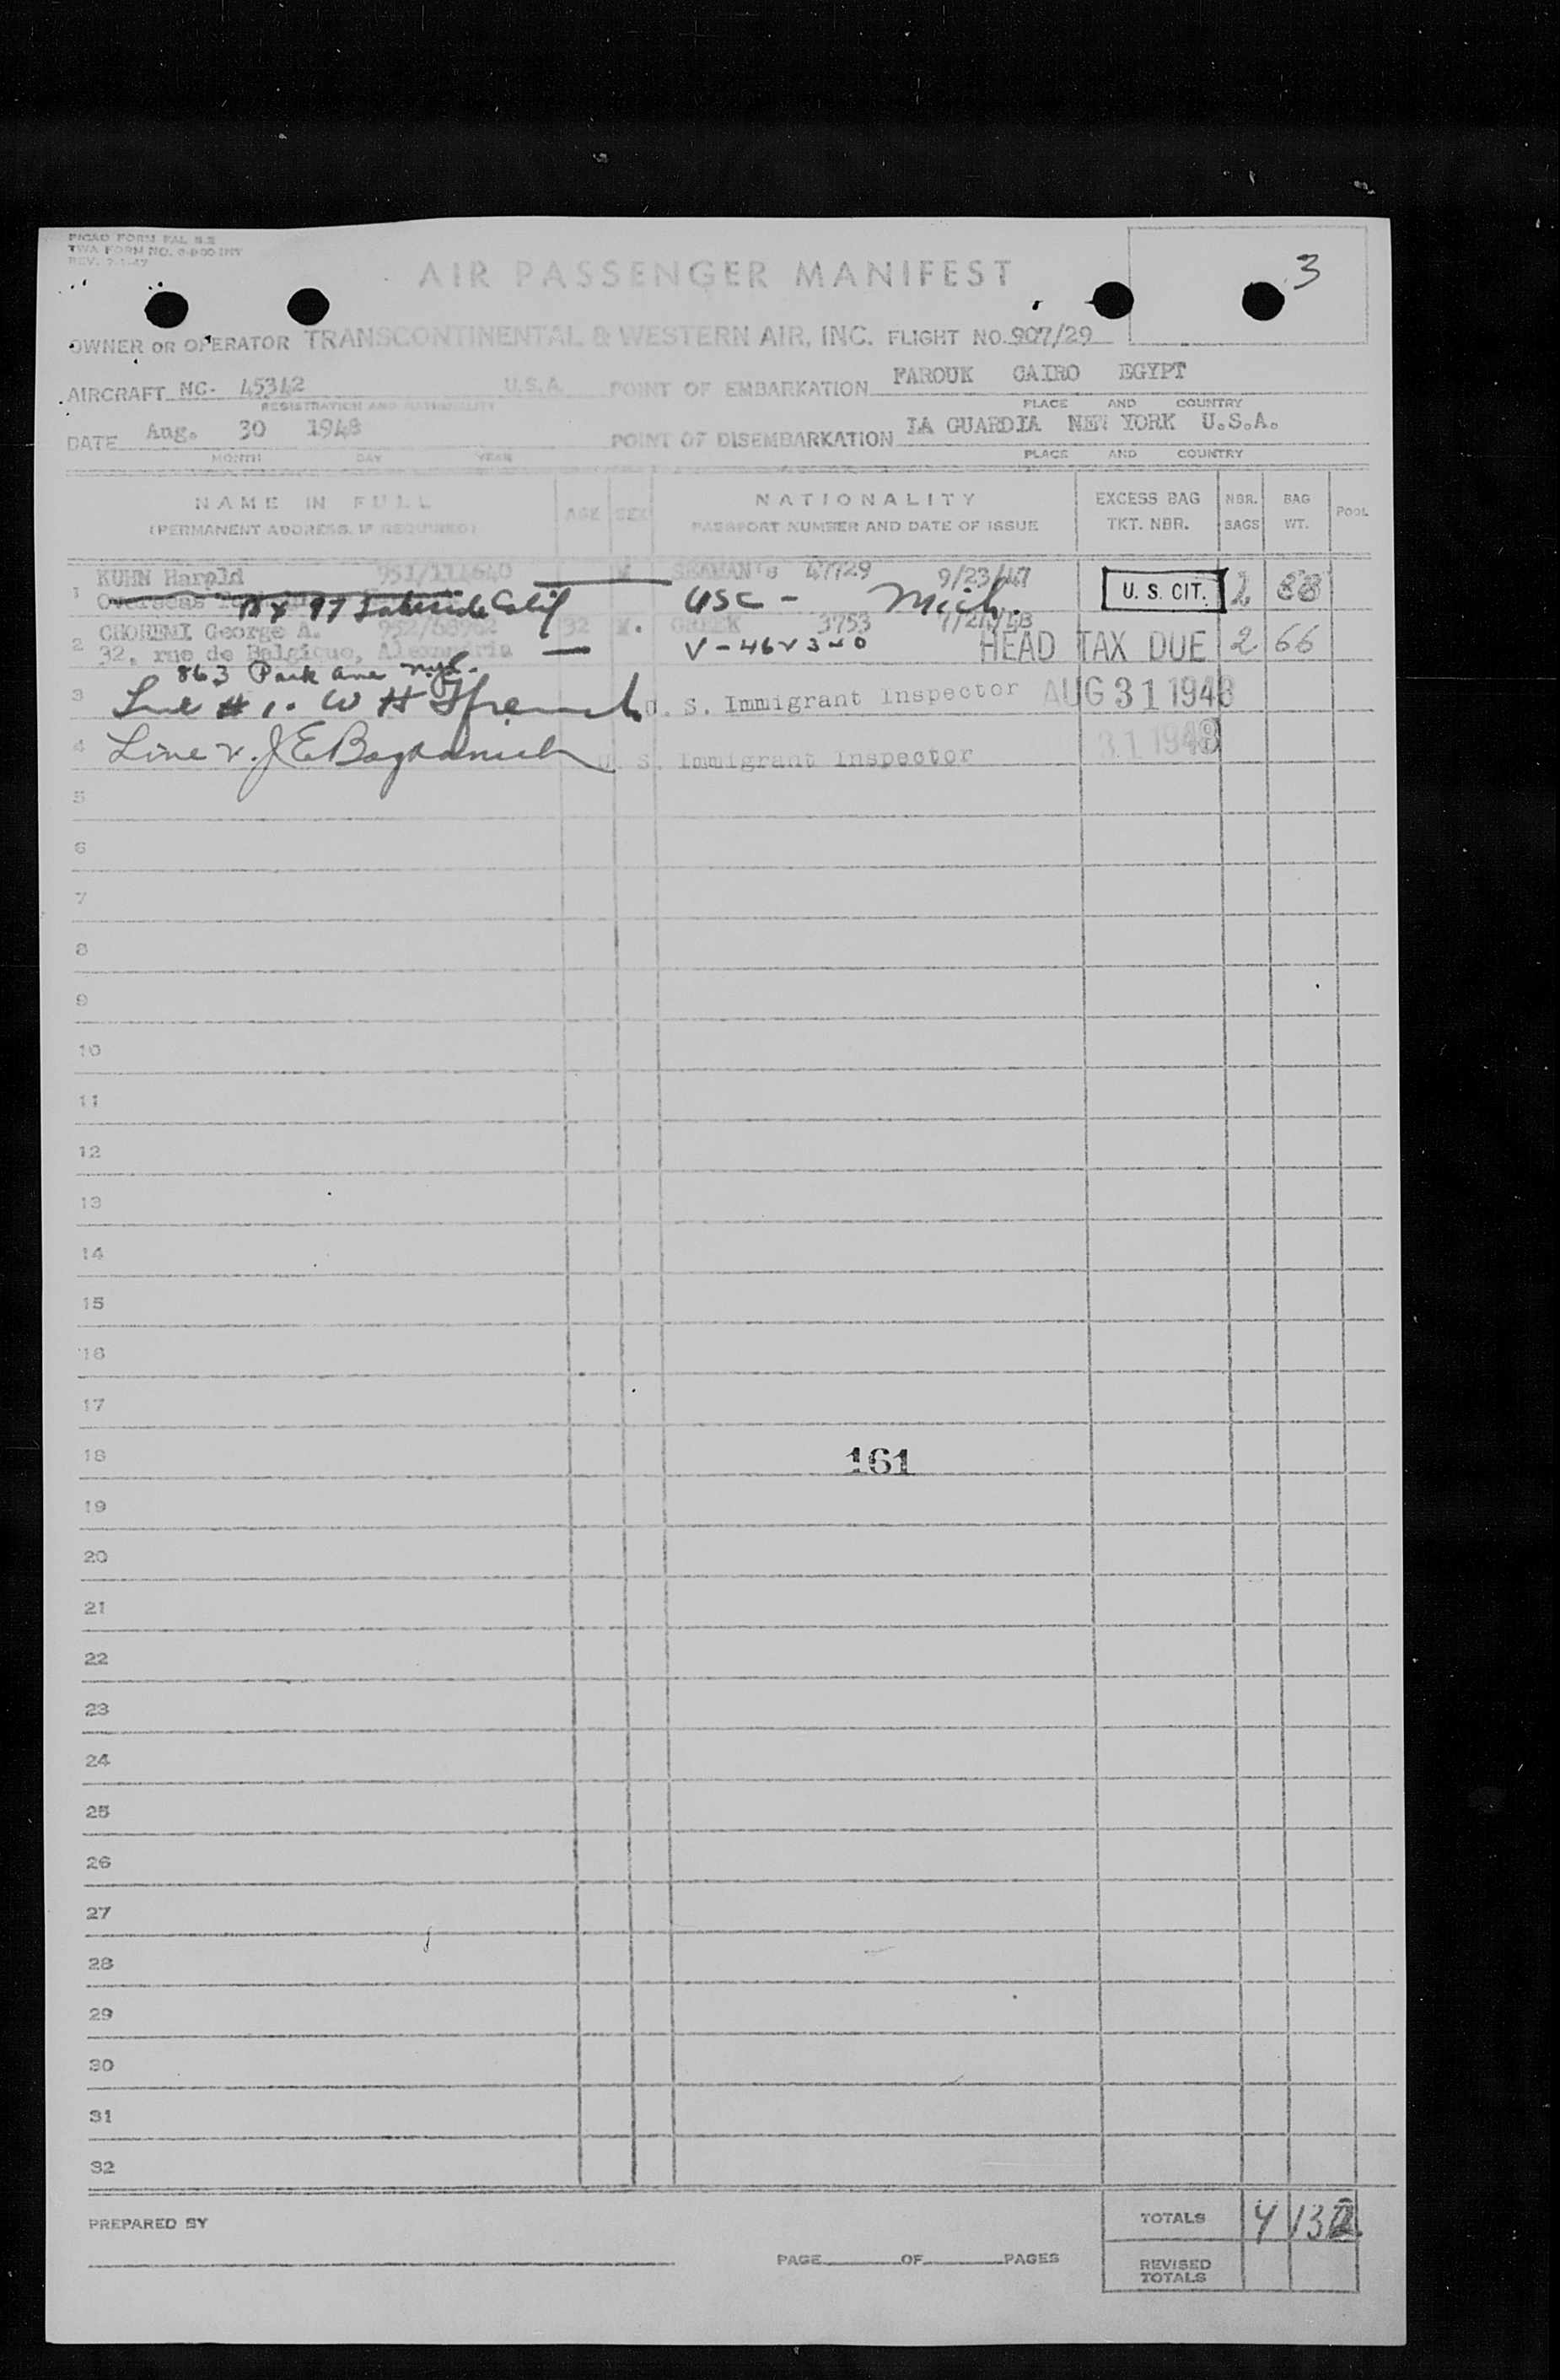 PICAO FORM FAL
TWA FORM NO.
REV.
3
AIR PASSENGER MANIFEST
OWNER OR OPERATOR TRANSCONTINENTAL & WESTERN AIR, INC. FLIGHT NO. 907/29
AIRCRAFT NC- 45342 U.S.A. POINT OF EMBARKATION FAROUK CAIRO EGYPT
REGISTRATION AND NATIONALITY PLACE AND COUNTRY
DATE Aug. 30 1948 POINT OF DISEMBARKATION LA GUARDIA NEW YORK U.S.A.
MONTH DAY YEAR PLACE AND COUNTRY
NAME IN FULL AGE SEX NATIONALITY EXCESS BAG NBR. BAG POOL
(PERMANENT ADDRESS, IF REQUIRED) PASSPORT NUMBER AND DATE OF ISSUE TKT. NBR. BAGS WT.
1 KUHN Harold 951/111640 SEAMAN'S 47729 9/23/47 U. S. CIT. 2
Overseas Bx 97 Calif USC - Mich.
2 CHOREMI George A. 32 GREEK 3753
32, rue de Belgique, Alexandria V-46 HEAD TAX DUE 2 66
863 Park Ave
3 Line #1. W H U. S. Immigrant Inspector AUG 31 1948
4 Line 2. J E U. S. Immigrant Inspector 31 1948
5
6
7
8
9
10
11
12
13
14
15
16
17
18 161
19
20
21
22
23
24
25
26
27
28
29
30
31
32
PREPARED BY TOTALS 4 132
PAGE OF PAGES REVISED
TOTALS